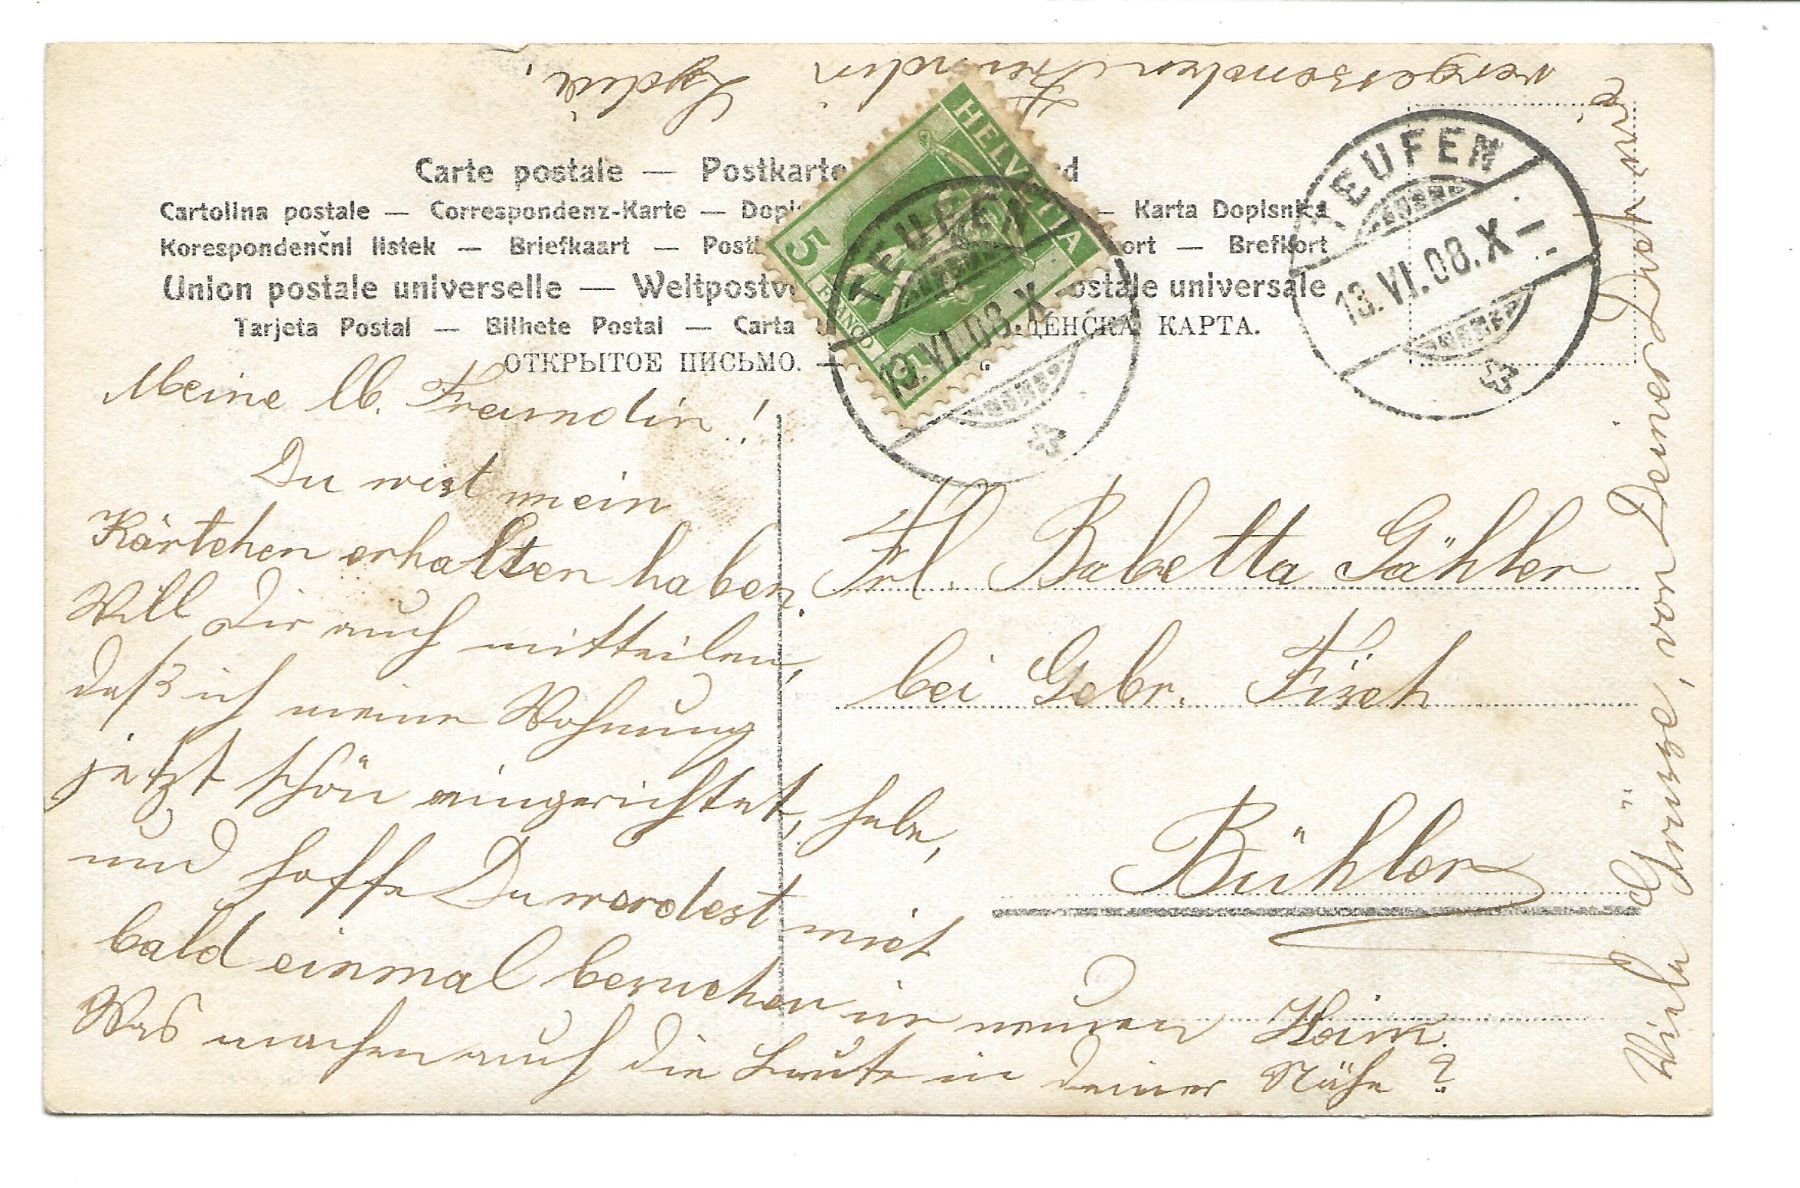 Carte postale — Postkarte
Cartolina postale — Correspondenz-Karte — — Karta Dopisnica
Korespondenční listek — Briefkaart — — Brefkort
Union postale universelle — Weltpostv postale universale
Tarjeta Postal — Bilhete Postal — Carta КАРТА.
ОТКРЫТОЕ ПИСЬМО. —
HELVETIA
5
FRANCO
TEUFEN
13.VI.08.X
TEUFEN
13.VI.08.X
Meine lb. Freundin!
Du wirst mein
Kärtchen erhalten haben.
Will Dir auch mitteilen,
daß ich meine Wohnung
jetzt schön eingerichtet, habe,
und hoffe Du werdest mich
bald einmal besuchen im neuen Heim.
Was machen auch die Leute in deiner Nähe?
Viele Grüsse, von Deiner Dich nie
vergessenden Freundin Lydia.
Frl. Babetta Gähler
bei Gebr. Fisch
Bühler